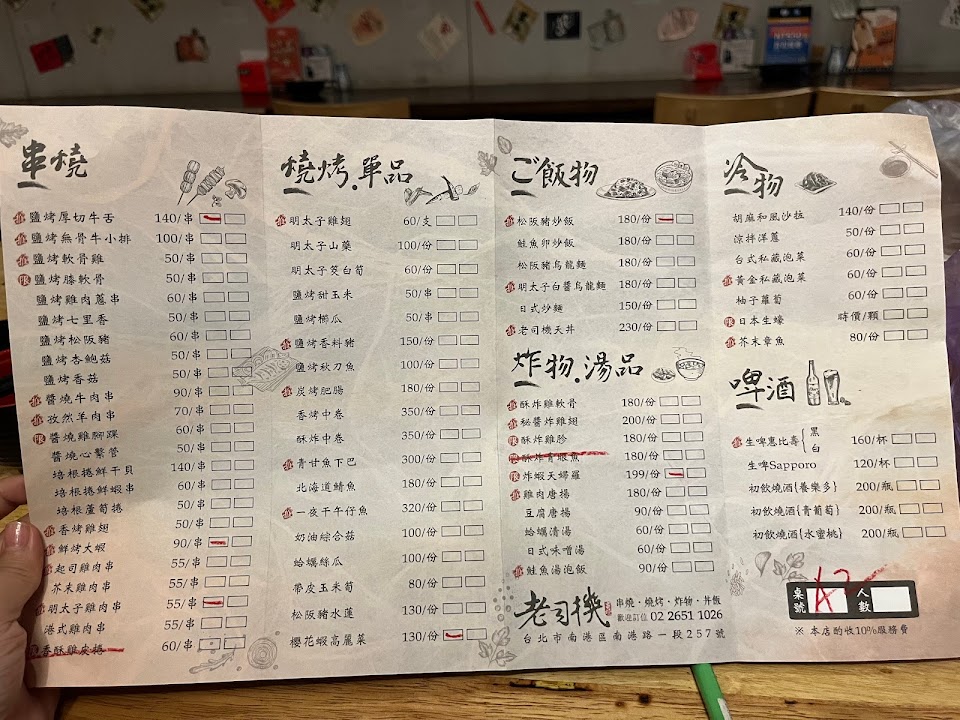 串燒
鹽烤厚切牛舌 140/串
鹽烤無骨牛小排 100/串
鹽烤軟骨雞 50/串
鹽烤膝軟骨 50/串
鹽烤雞肉蔥串 60/串
鹽烤七里香 50/串
鹽烤松阪豬 60/串
鹽烤杏鮑菇 50/串
鹽烤香菇 50/串
醬燒牛肉串 90/串
孜然羊肉串 70/串
醬燒雞腳踝 60/串
醬燒心繫管 50/串
培根捲鮮干貝 140/串
培根捲鮮蝦串 60/串
培根蘆筍捲 50/串
香烤雞翅 50/串
鮮烤大蝦 90/串
起司雞肉串 55/串
芥末雞肉串 55/串
明太子雞肉串 55/串
港式雞肉串 55/串
香酥雞皮捲 60/串
燒烤.單品
明太子雞翅 60/支
明太子山藥 100/份
明太子筊白筍 60/份
鹽烤甜玉米 50/串
鹽烤櫛瓜 50/串
鹽烤香料豬 150/份
鹽烤秋刀魚 100/份
炭烤肥腸 180/份
香烤中卷 350/份
酥炸中卷 350/份
青甘魚下巴 300/份
北海道鯖魚 180/份
一夜干午仔魚 320/份
奶油綜合菇 100/份
蛤蠣絲瓜 100/份
帶皮玉米筍 80/份
松阪豬水蓮 130/份
櫻花蝦高麗菜 130/份
ご飯物
松阪豬炒飯 180/份
鮭魚卵炒飯 180/份
松阪豬烏龍麵 180/份
明太子白醬烏龍麵 180/份
日式炒麵 150/份
老司機天丼 230/份
炸物.湯品
酥炸雞軟骨 180/份
秘醬炸雞翅 200/份
酥炸雞胗 180/份
酥炸青眼魚 180/份
炸蝦天婦羅 199/份
雞肉唐揚 180/份
豆腐唐揚 90/份
蛤蠣清湯 60/份
日式味噌湯 60/份
鮭魚湯泡飯 90/份
老司機
串燒・燒烤・炸物・丼飯
歡迎訂位 02 2651 1026
台北市南港區南港路一段257號
冷物
胡麻和風沙拉 140/份
涼拌洋蔥 50/份
台式私藏泡菜 60/份
黃金私藏泡菜 60/份
柚子蘿蔔 60/份
日本生蠔 時價/顆
芥末章魚 80/份
啤酒
生啤惠比壽{黑 白 160/杯
生啤Sapporo 120/杯
初飲燒酒{養樂多} 200/瓶
初飲燒酒{青葡萄} 200/瓶
初飲燒酒{水蜜桃} 200/瓶
桌號 A2 人數
※ 本店酌收10%服務費